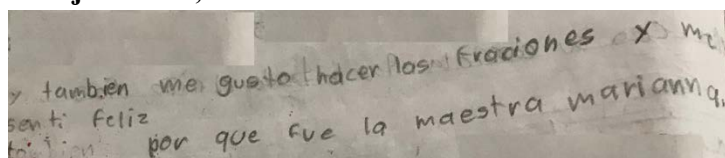 y tambien me gusto hacer los fraciones y me
senti feliz
por que fue la maestra marianna.